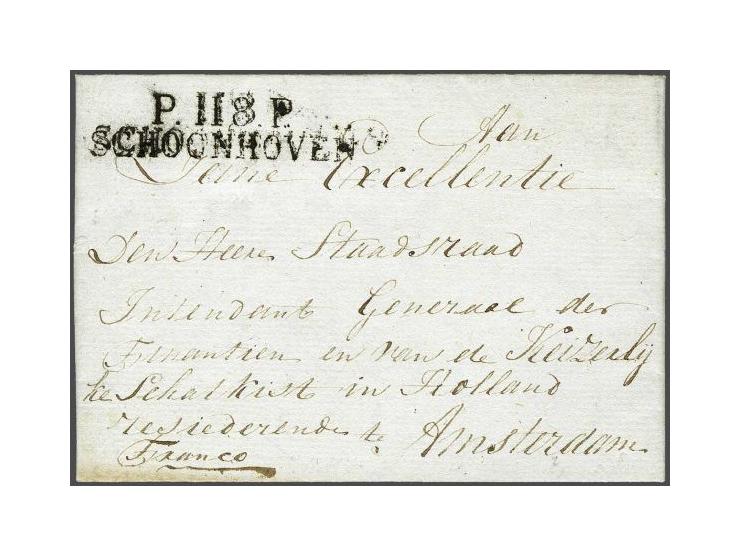 P. 118 P.
SCHOONHOVEN
Aan
Zeine Excellentie
Den Heere Staadsraad
Intendant Generaal der
Finantien en van de Keizerly
ke Schatkist in Holland
resiederende te Amsterdam
Franco